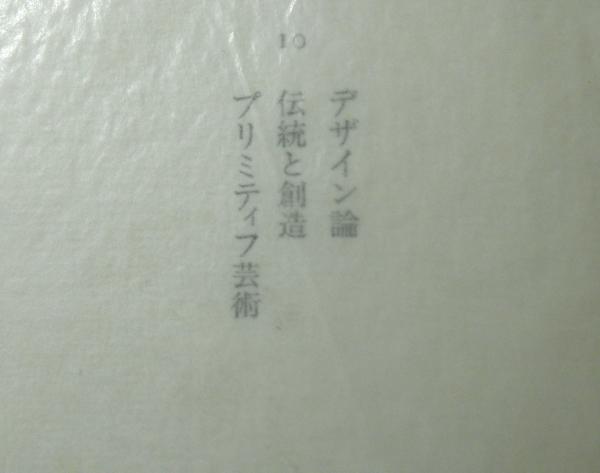 10
デザイン論
伝統と創造
プリミティフ芸術